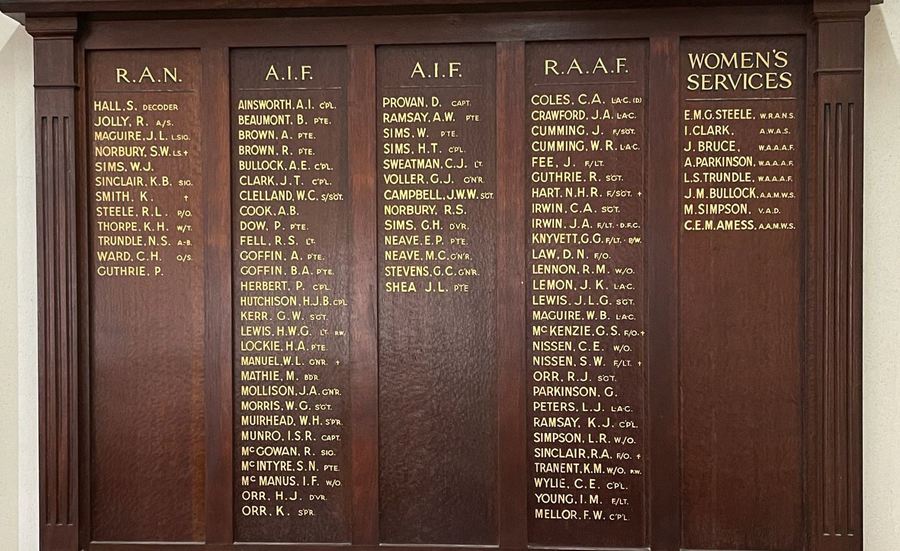 R.A.N.
HALL.S. DECODER
JOLLY, R. A/S.
MAGUIRE, J.L. L.SIG.
NORBURY, S.W. LS.✝
SIMS. W.J.
SINCLAIR, K.B. SIG.
SMITH, K. ✝
STEELE, R.L. P/O.
THORPE, K.H. W/T.
TRUNDLE, N.S. A-B.
WARD, C.H. O/S.
GUTHRIE, P.
A.I.F.
AINSWORTH, A.I. CPL.
BEAUMONT, B. PTE.
BROWN, A. PTE.
BROWN, R. PTE.
BULLOCK, A.E. CPL.
CLARK, J.T. CPL.
CLELLAND, W.C. S/SGT.
COOK, A.B.
DOW, P. PTE.
FELL, R.S. LT.
GOFFIN, A. PTE.
GOFFIN, B.A. PTE.
HERBERT, P. CPL.
HUTCHISON, H.J.B. CPL.
KERR. G.W. SGT.
LEWIS, H.W.G. LT. P.W.
LOCKIE, H.A. PTE.
MANUEL, W.L. GNR. ✝
MATHIE, M. BDR.
MOLLISON, J.A. GNR.
MORRIS, W.G. SGT.
MUIRHEAD, W.H. SPR.
MUNRO, I.S.R. CAPT.
McGOWAN, R. SIG.
McINTYRE, S.N. PTE.
McMANUS, I.F. W/O.
ORR, H.J. DVR.
ORR, K. SPR.
A.I.F.
PROVAN, D. CAPT.
RAMSAY, A.W. PTE
SIMS, W. PTE.
SIMS, H.T. CPL.
SWEATMAN, C.J. LT.
VOLLER, G.J. GNR.
CAMPBELL, J.W.W. SGT.
NORBURY, R.S.
SIMS, G.H. DVR.
NEAVE, E.P. PTE.
NEAVE, M.C. GNR.
STEVENS, G.C. GNR.
SHEA J.L. PTE
R.A.A.F.
COLES, C.A. L·A·C. (D)
CRAWFORD, J.A. L·A·C.
CUMMING, J. F/SGT.
CUMMING, W.R. L·A·C.
FEE, J. F/LT.
GUTHRIE, R. SGT.
HART, N.H.R. F/SGT. ✝
IRWIN, C.A. SGT.
IRWIN, J.A. F/LT.·D.F.C.
KNYVETT, G.G. F/LT.·P/W.
LAW, D.N. F/O.
LENNON, R.M. W/O.
LEMON, J.K. L·A·C.
LEWIS, J.L.G. SGT.
MAGUIRE, W.B. L·A·C.
McKENZIE, G.S. F/O.✝
NISSEN, C.E. W/O.
NISSEN, S.W. F/LT. ✝
ORR, R.J. SGT.
PARKINSON, G.
PETERS, L.J. L·A·C.
RAMSAY, K.J. CPL.
SIMPSON, L.R. W/O.
SINCLAIR, R.A. F/O. ✝
TRANENT, K.M. W/O. P.W.
WYLIE, C.E. CPL.
YOUNG, I.M. F/LT.
MELLOR, F.W. CPL.
WOMEN'S
SERVICES
E.M.G. STEELE, W.R.A.N.S.
I. CLARK, A.W.A.S.
J. BRUCE, W.A.A.A.F.
A. PARKINSON, W.A.A.A.F.
L.S. TRUNDLE, W.A.A.A.F.
J.M. BULLOCK, A.A.M.W.S.
M. SIMPSON, V.A.D.
C.E.M. AMESS, A.A.M.W.S.